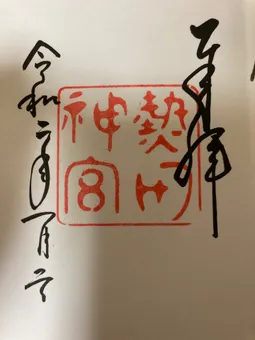 奉拝
熱田
神宮
令和二年一月